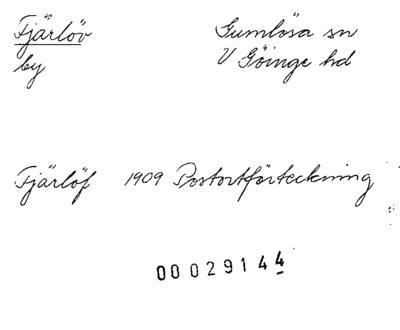 Fjärlöv
by
Gumlösa sn
V Göinge hd
Fjärlöf 1909 Postortförteckning
00029144